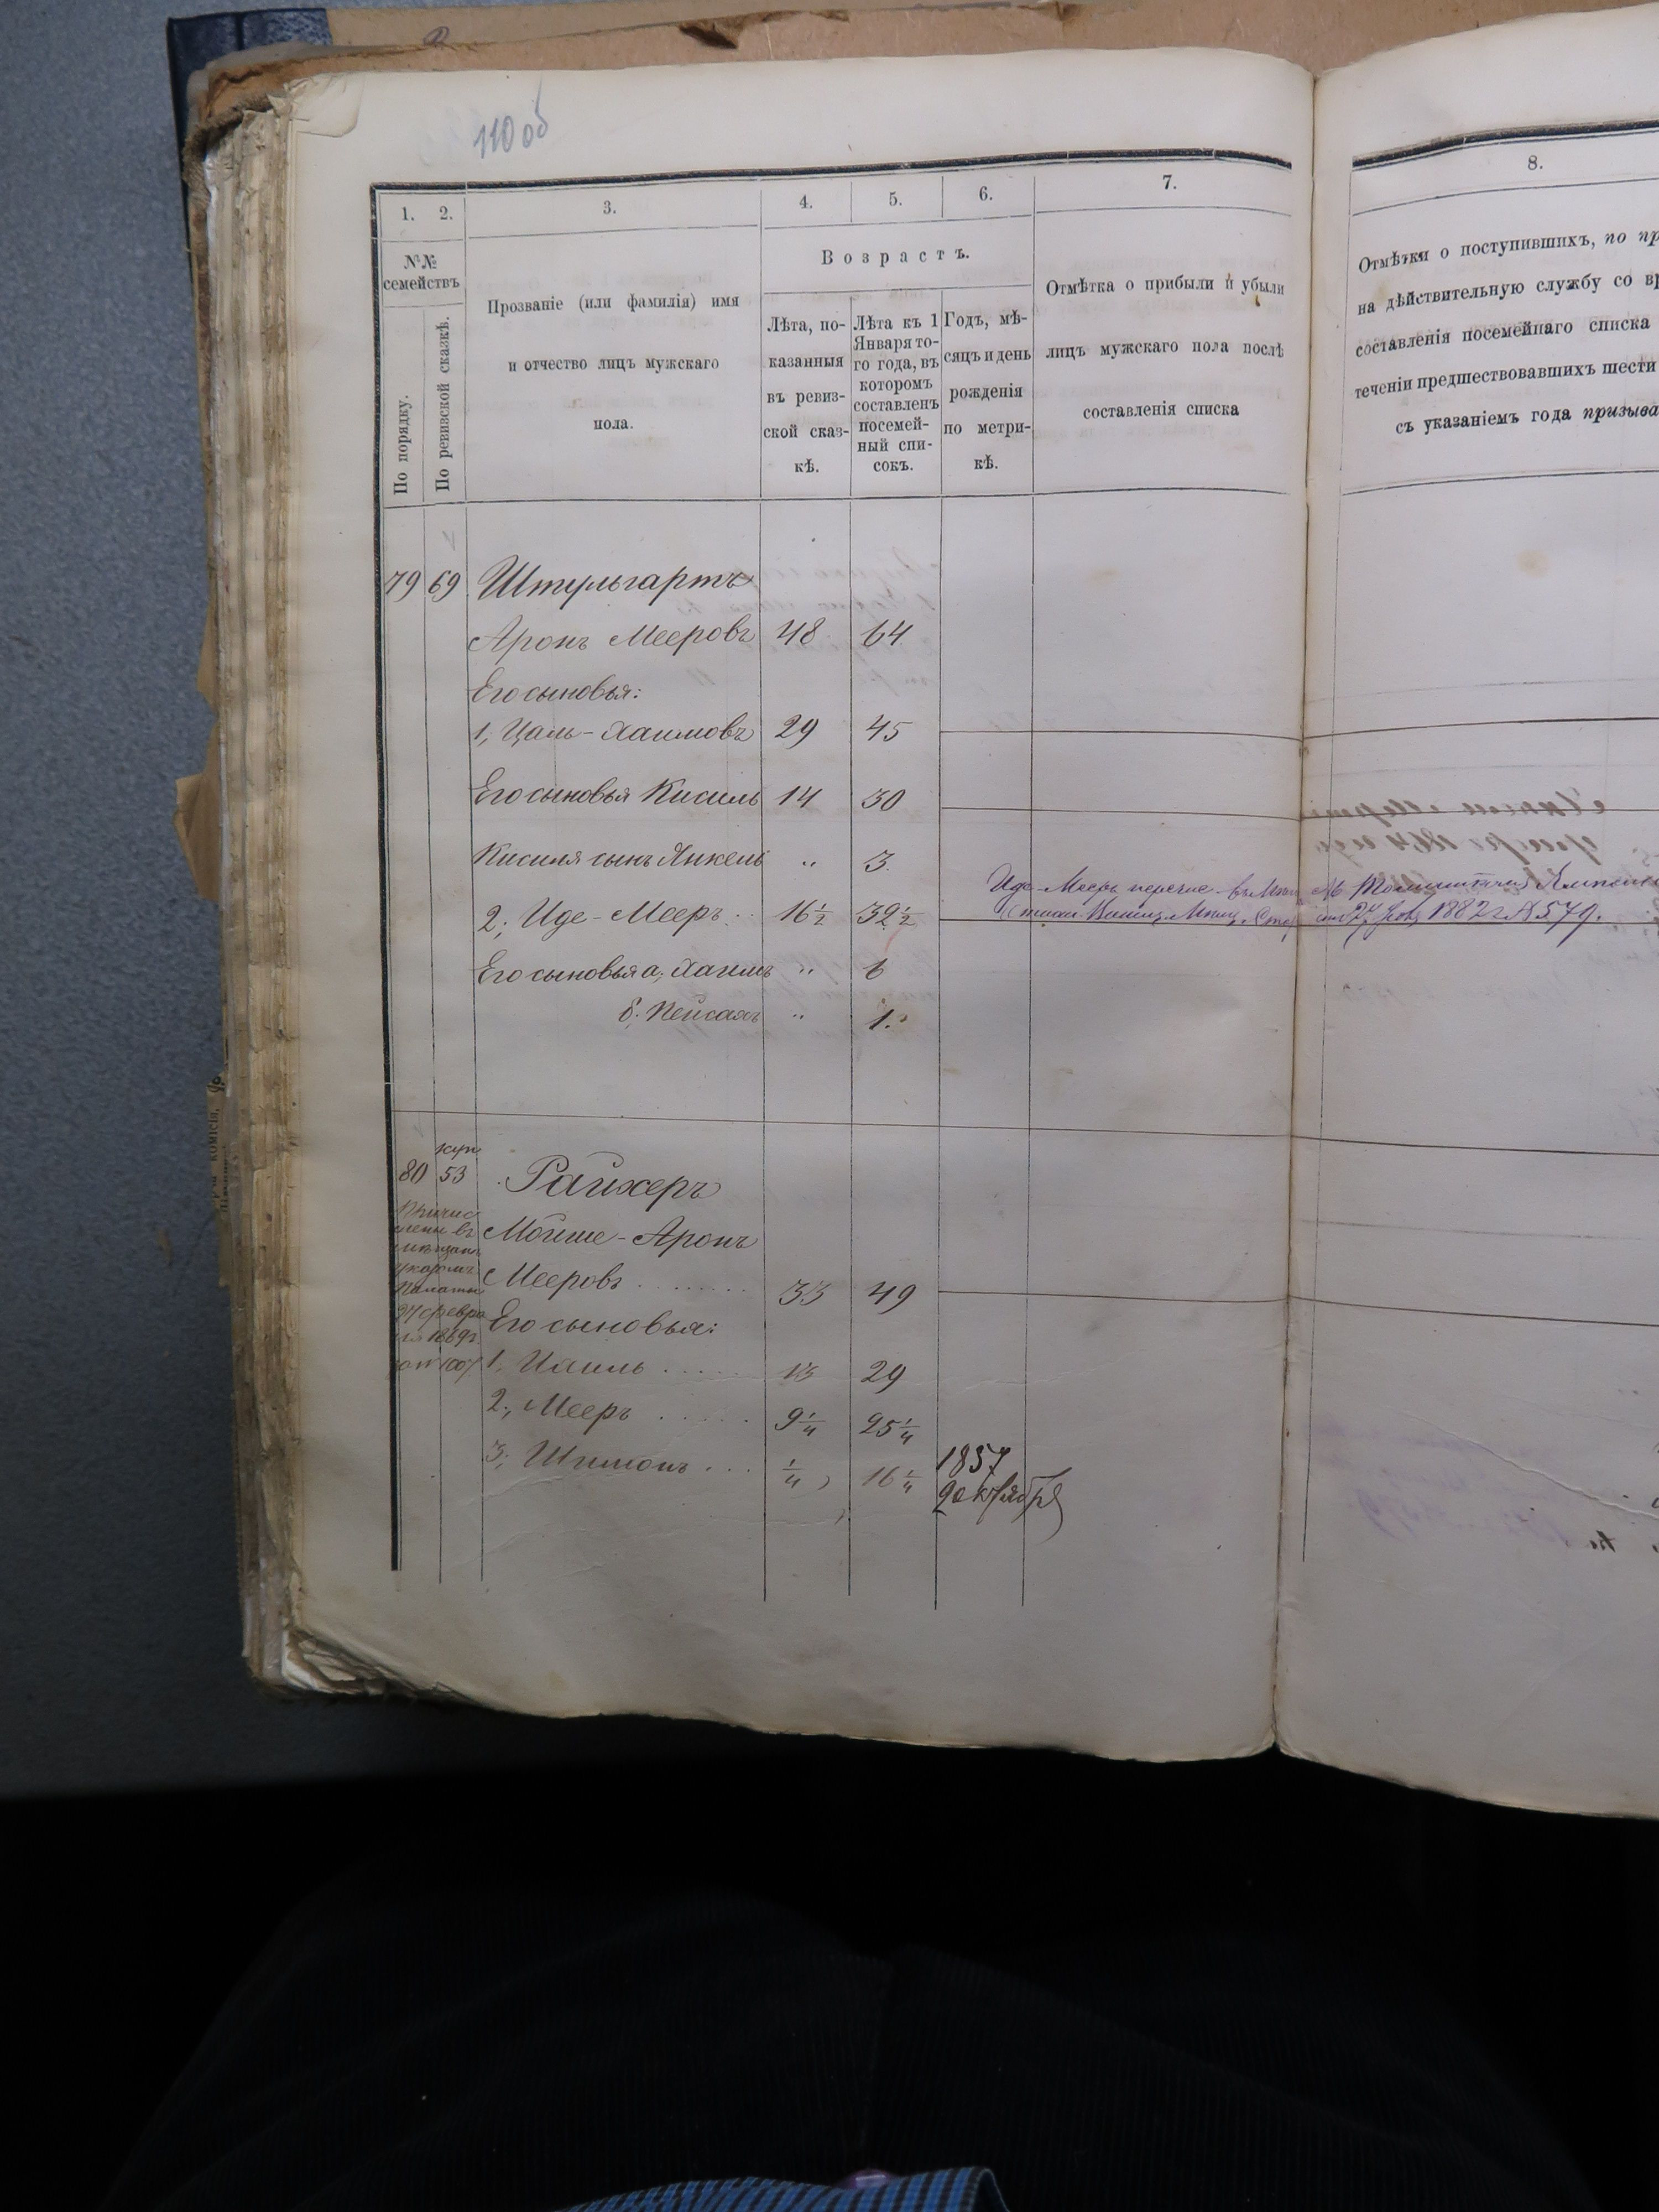 110 об
1.
2.
3.
4.
5.
6.
7.
8.
№№
семействъ
По порядку.
По ревизской сказкѣ.
Прозваніе (или фамилія) имя
и отчество лицъ мужскаго
пола.
Возрастъ.
Лѣта, по-
казанныя
въ ревиз-
ской сказ-
кѣ.
Лѣта къ 1
Января то-
го года, въ
которомъ
составленъ
посемей-
ный спи-
сокъ.
Годъ, мѣ-
сяцъ и день
рожденія
по метри-
кѣ.
Отмѣтка о прибыли и убыли
лицъ мужскаго пола послѣ
составленія списка
Отмѣтки о поступившихъ, по пр
на дѣйствительную службу со вр
составленія посемейнаго списка
теченіи предшествовавшихъ шести
съ указаніемъ года призыва
79 69 Штульгартъ
Аронъ Мееровъ 48 64
Его сыновья:
1, Цаль-Хаимовъ 29 45
Его сыновья Кисиль 14 30
Кисиля сынъ Янкель " 3
2, Иде-Мееръ 16 1/2 32 1/2
Иде-Мееръ перечис.
1882 г. № 579.
Его сыновья а, Хаимъ " 6
б, Пейсахъ " 1.
куп
80 53 Райхеръ
Причис
лены въ
мѣщан
указомъ
Палаты
27 февра
ля 1869 г.
за № 1007
Мойше-Аронъ
Мееровъ 33 49
Его сыновья:
1, Ицаль 13 29
2, Мееръ 9 1/4 25 1/4
3, Шимонъ 1/4 16 1/4 1857
9 октября